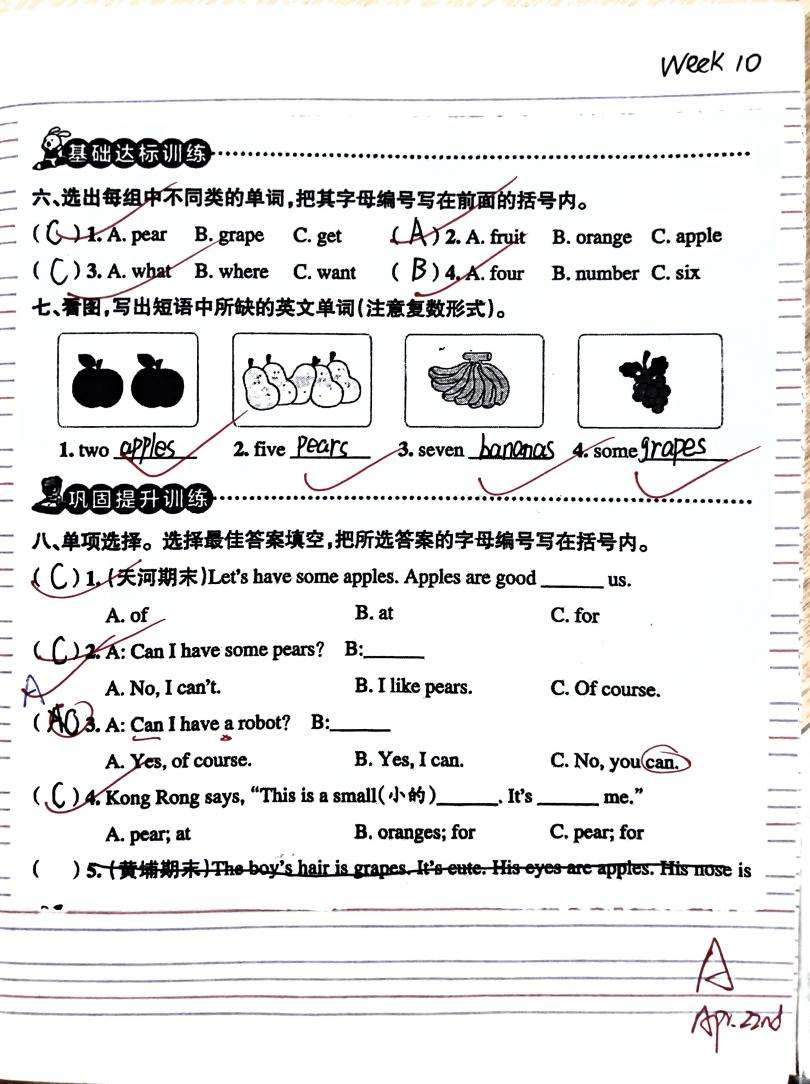 Week 10
基础达标训练
六、选出每组中不同类的单词,把其字母编号写在前面的括号内。
( C ) 1. A. pear B. grape C. get ( A ) 2. A. fruit B. orange C. apple
( C ) 3. A. what B. where C. want ( B ) 4. A. four B. number C. six
七、看图,写出短语中所缺的英文单词(注意复数形式)。
1. two apples 2. five pears 3. seven bananas 4. some grapes
巩固提升训练
八、单项选择。选择最佳答案填空,把所选答案的字母编号写在括号内。
( C ) 1. (天河期末)Let's have some apples. Apples are good ______ us.
A. of B. at C. for
( C ) 2. A: Can I have some pears? B:______
A. No, I can't. B. I like pears. C. Of course.
A
( C ) 3. A: Can I have a robot? B:______
A. Yes, of course. B. Yes, I can. C. No, you can.
( C ) 4. Kong Rong says, “This is a small(小的)______. It's ______ me.”
A. pear; at B. oranges; for C. pear; for
( ) 5. (黄埔期末)The boy's hair is grapes. It's cute. His eyes are apples. His nose is
A
Apr. 22nd